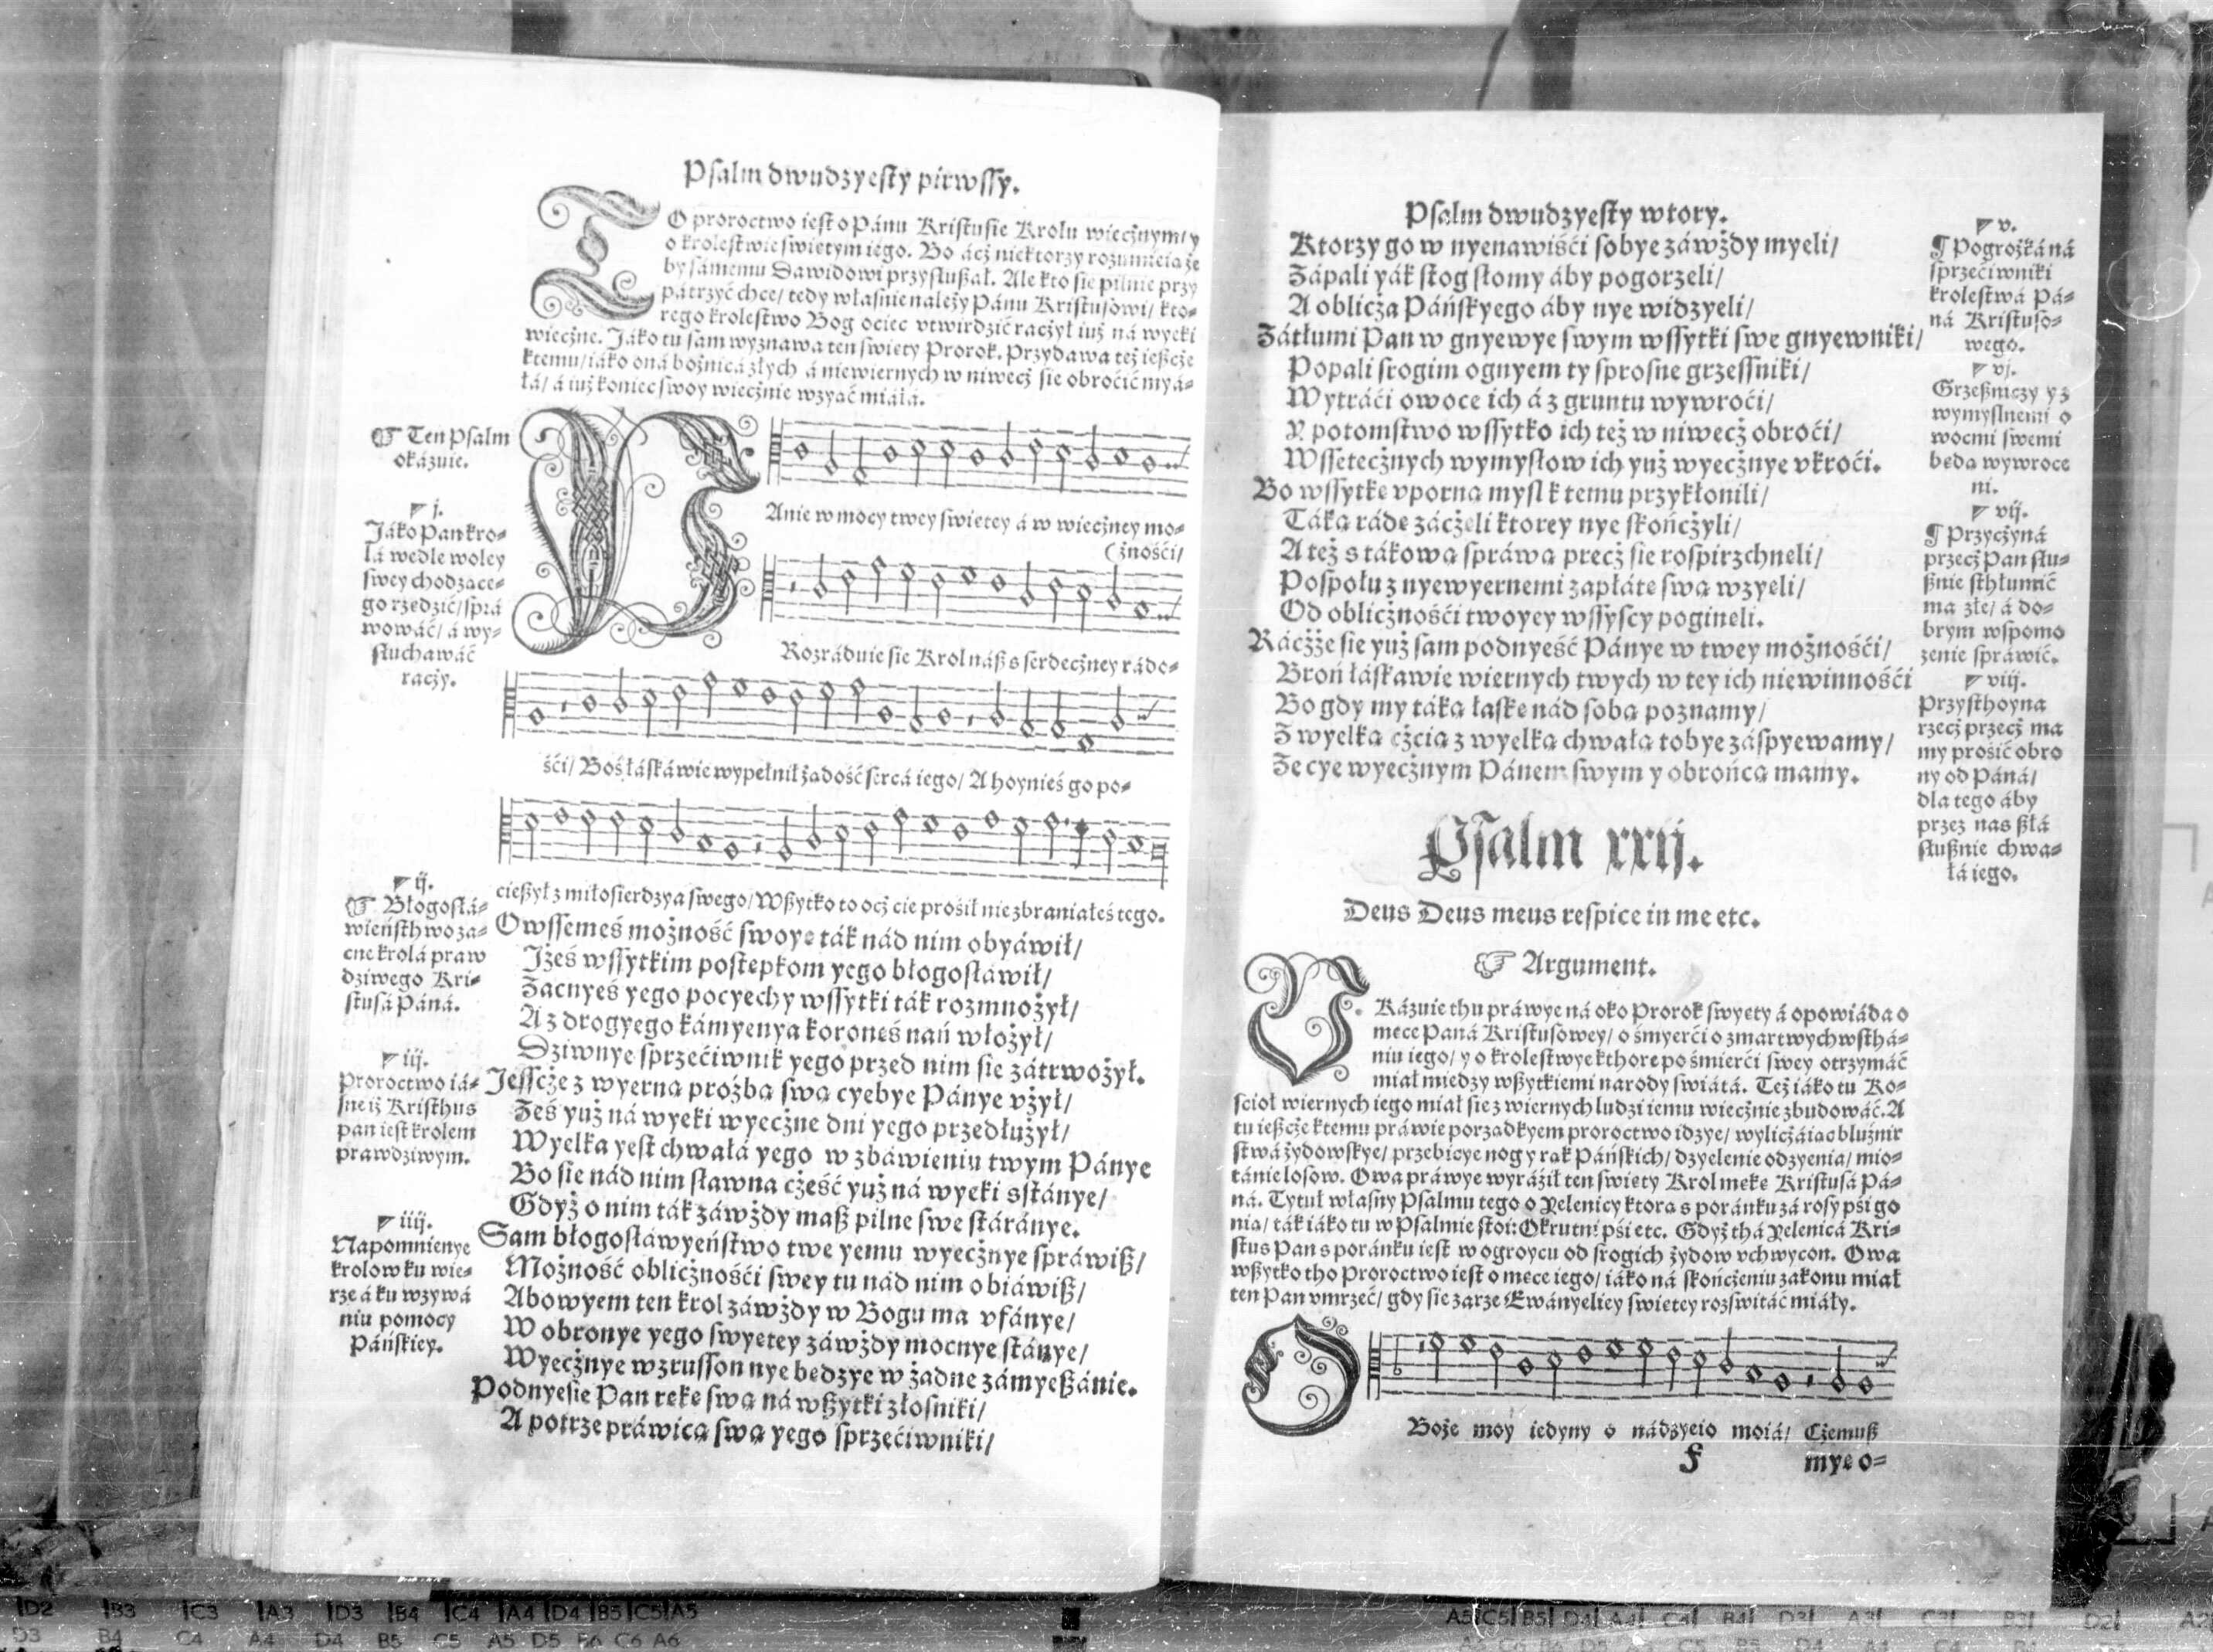 Psalm dwudzyesty pirwssy.
TO proroctwo iest o Pánu Kristusie Krolu wiecżnym/ y
o krolestwie swietym iego. Bo ácż niektorzy rozumieia że
by sámemu Dawidowi przysłußał. Ale kto sie pilnie przy
pátrzyć chce/ tedy własnie należy Pánu Kristusowi/ kto-
rego krolestwo Bog ociec vtwirdzić racżył iuż ná wyeki
wiecżne. Jáko tu sam wyznawa ten swiety Prorok. Przydawa też ießcże
ktemu/ iáko oná bożnicá złych á niewiernych w niwecż sie obroćić myá-
łá/ á iuż koniec swoy wiecżnie wzyać miáłá.
☞ Ten Psalm
okázuie.
j.
Jáko Pan kro-
lá wedle woley
swey chodzace-
go rzedzić/ sprá
wowáć/ á wy-
słuchawáć
racży.
PAnie w mocy twey swietey á w wiecżney mo-
(żnośći/
Rozráduie sie Krol náß s serdecżney rádo-
śći/ Boś łáskáwie wypełnił żadość sercá iego/ A hoynieś go po-
cießył z miłosierdzya swego/ Wßytko to ocż cie prosił nie zbraniałeś tego.
ij.
☞ Błogosłá-
wieństhwo za-
cne krolá praw
dziwego Kri-
stusá Páná.
Owssemeś możność swoye ták nád nim obyáwił/
Jżeś wssytkim postepkom yego błogosłáwił/
Zacnyeś yego pocyechy wssytki ták rozmnożył/
A z drogyego kámyenya koroneś nań włożył/
Dziwnye sprzećiwnik yego przed nim sie zátrwożył.
iij.
Proroctwo iá-
sne iż Kristhus
pan iest krolem
prawdziwym.
Jesscże z wyerna proźba swa cyebye Pánye vżył/
Żeś yuż ná wyeki wyecżne dni yego przedłużył/
Wyelka yest chwałá yego w zbáwieniu twym Pánye
Bo sie nád nim sławna cżeść yuż ná wyeki sstánye/
Gdyż o nim ták záwżdy maß pilne swe stáránye.
iiij.
Napomnienye
krolow ku wie-
rze á ku wzywá
niu pomocy
Páńskiey.
Sam błogosłáwyeństwo twe yemu wyecżnye spráwiß/
Możność oblicżnośći swey tu nád nim obiáwiß/
Abowyem ten krol záwżdy w Bogu ma vfánye/
W obronye yego swyetey záwżdy mocnye stánye/
Wyecżnye wzrusson nye bedzye w żadne zámyeßánie.
Podnyesie Pan reke swa ná wßytki złosniki/
A potrze práwica swa yego sprzećiwniki/
Psalm dwudzyesty wtory.
Ktorzy go w nyenawiśći sobye záwżdy myeli/
Zápali yák stog słomy áby pogorzeli/
A oblicża Páńskyego áby nye widzyeli/
Zátłumi Pan w gnyewye swym wssytki swe gnyewniki/
v.
¶ Pogrożká ná
sprzećiwniki
krolestwá Pá-
ná Kristuso-
wego.
Popali srogim ognyem ty sprosne grzessniki/
Wytráći owoce ich á z gruntu wywroći/
Y potomstwo wssytko ich też w niwecż obroći/
Wssetecżnych wymysłow ich yuż wyecżnye vkroći.
vj.
Grzeßniczy yz
wymyslnemi o
wocmi swemi
beda wywroce
ni.
Bo wssytke vporna mysl k temu przykłonili/
Táka ráde zácżeli ktorey nye skońcżyli/
A też s tákowa spráwa precż sie rospirzchneli/
Pospołu z nyewyernemi zapłáte swa wzyeli/
Od oblicżnośći twoyey wssyscy pogineli.
vij.
¶ Przycżyná
przecż Pan słu-
ßnie sthłumić
ma złe/ á do-
brym wspomo
żenie spráwić.
Racżże sie yuż sam podnyeść Pánye w twey możnośći/
Broń łáskawie wiernych twych w tey ich niewinnośći
Bo gdy my táka łaske nád soba poznamy/
Z wyelka cżcia z wyelka chwała tobye záspyewamy/
Że cye wyecżnym Pánem swym y obrońca mamy.
viij.
Przysthoyna
rzecż przecż ma
my prosić obro
ny od Páná/
dla tego áby
przez nas ßłá
słußnie chwa-
łá iego.
Psalm xxij.
Deus Deus meus respice in me etc.
☞ Argument.
VKázuie thu práwye ná oko Prorok swyety á opowiáda o
mece Paná Kristusowey/ o śmyerći o zmartwychwsthá-
niu iego/ y o krolestwye kthore po śmierći swey otrzymáć
miał miedzy wßytkiemi narody swiátá. Też iáko tu Ko-
scioł wiernych iego miał sie z wiernych ludzi iemu wiecżnie zbudowáć. A
tu ießcże ktemu práwie porzadkyem proroctwo idzye/ wylicżáiac bluźnir
stwá żydowskye/ przebicye nog y rak Páńskich/ dzyelenie odzyenia/ mio-
tánie losow. Owa práwye wyráźił ten swiety Krol meke Kristusá Pá-
ná. Tytuł własny Psalmu tego o Yelenicy ktora s poránku zá rosy pśi go
nia/ ták iáko tu w Psalmie stoi: Okrutni pśi etc. Gdyż thá Yelenicá Kri-
stus Pan s poránku iest w ogroycu od srogich żydow vchwycon. Owa
wßytko tho Proroctwo iest o mece iego/ iáko ná skońcżeniu zakonu miał
ten Pan vmrzeć/ gdy sie zarze Ewányeliey swietey rozswitáć miáły.
O Boże moy iedyny o nádzyeio moiá/ Cżemuß
F mye o-
D2 B3 C3 A3 D3 B4 C4 A4 D4 B5 C5 A5
D3 B4 C4 A4 D4 B5 C5 A5 D5 B6 C6 A6
A5 C5 B5 D4 A4 C4 B4 D3 A3 C3 B3 D2 A2